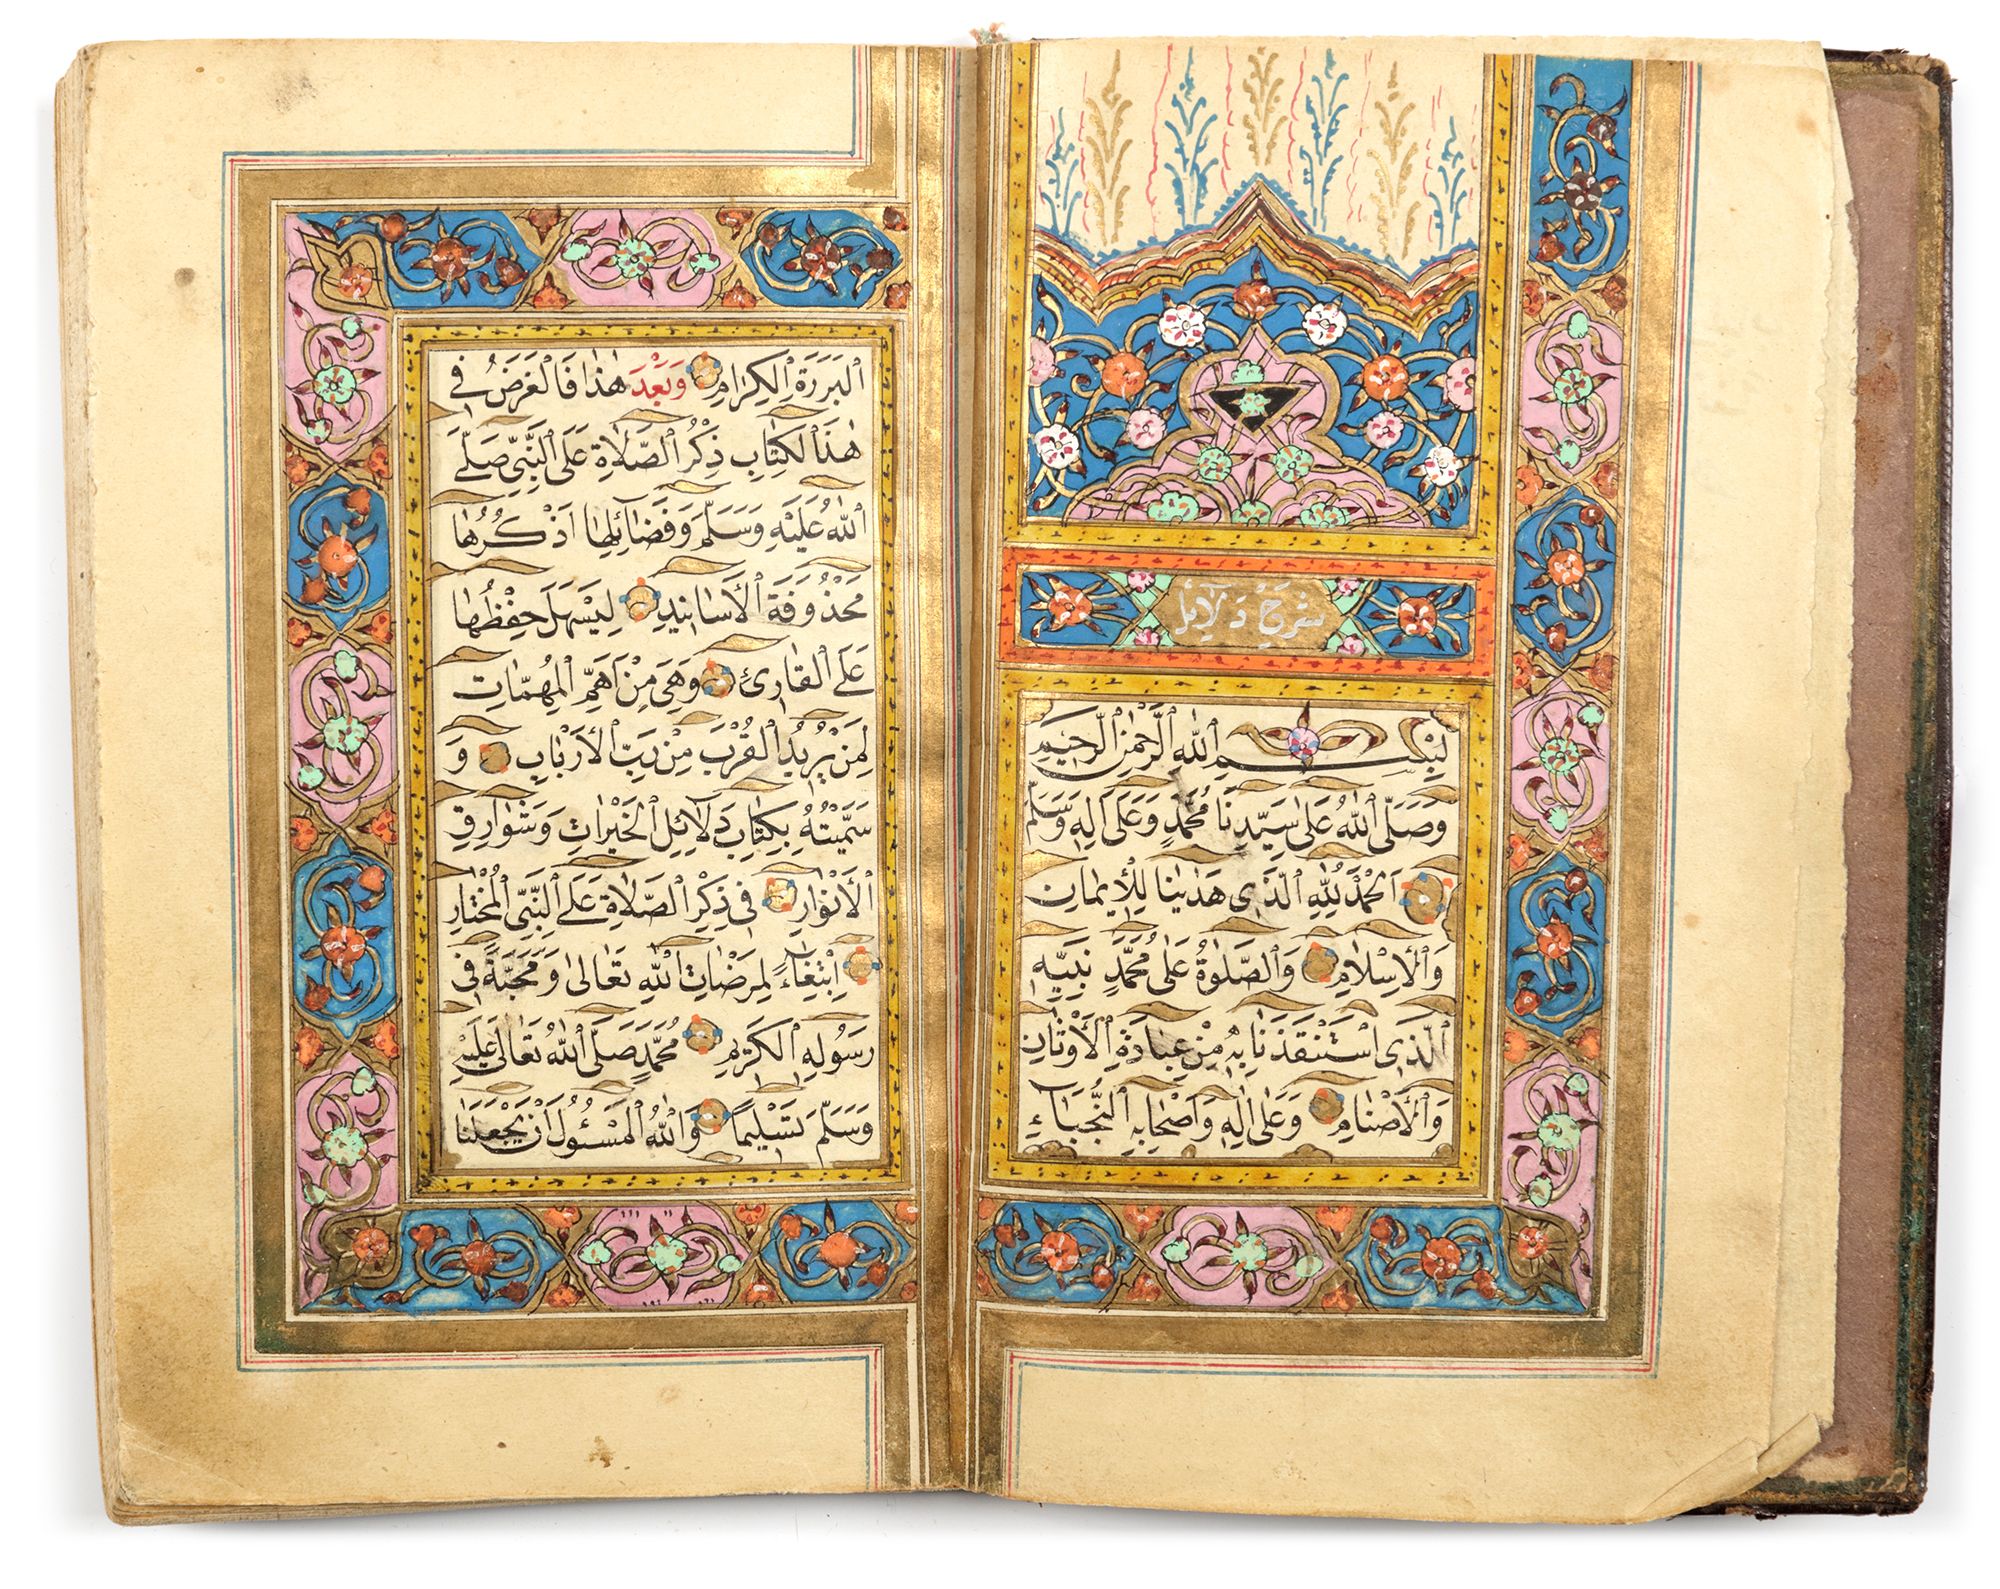 شرح دلائل
بسم الله الرحمن الرحيم
وَصَلَّى اللهُ عَلٰى سَيِّدِنَا مُحَمَّدٍ وَعَلٰى اٰلِهِ وَسَلَّمَ
اَلْحَمْدُ لِلّٰهِ الَّذِى هَدٰينَا لِلْاِيمَانِ
وَالْاِسْلَامِ وَالصَّلٰوةُ عَلٰى مُحَمَّدٍ نَبِيِّهِ
الَّذِى اسْتَنْقَذَنَا بِهِ مِنْ عِبَادَةِ الْاَوْثَانِ
وَالْاَصْنَامِ وَعَلٰى اٰلِهِ وَاَصْحَابِهِ النُّجَبَاءِ
الْبَرَرَةِ الْكِرَامِ وَبَعْدَ هٰذَا فَالْغَرَضُ فِى
هٰذَا لْكِتَابِ ذِكْرُ الصَّلَاةِ عَلَى النَّبِىِّ صَلَّى
اللهُ عَلَيْهِ وَسَلَّمَ وَفَضَائِلِهَا اَذْكُرُهَا
مَحْذُوفَةَ الْاَسَانِيدِ لِيَسْهَلَ حِفْظُهَا
عَلَى الْقَارِئِ وَهِىَ مِنْ اَهَمِّ الْمُهِمَّاتِ
لِمَنْ يُرِيدُ الْقُرْبَ مِنْ رَبِّ الْاَرْبَابِ وَ
سَمَّيْتُهُ بِكِتَابِ دَلَائِلِ الْخَيْرَاتِ وَشَوَارِقِ
الْاَنْوَارِ فِى ذِكْرِ الصَّلَاةِ عَلَى النَّبِىِّ الْمُخْتَارِ
اِبْتِغَاءً لِمَرْضَاتِ اللهِ تَعَالٰى وَمَحَبَّةً فِى
رَسُولِهِ الْكَرِيمِ مُحَمَّدٍ صَلَّى اللهُ تَعَالٰى عَلَيْهِ
وَسَلَّمَ تَسْلِيمًا وَاللهُ الْمَسْئُولُ اَنْ يَجْعَلَنَا